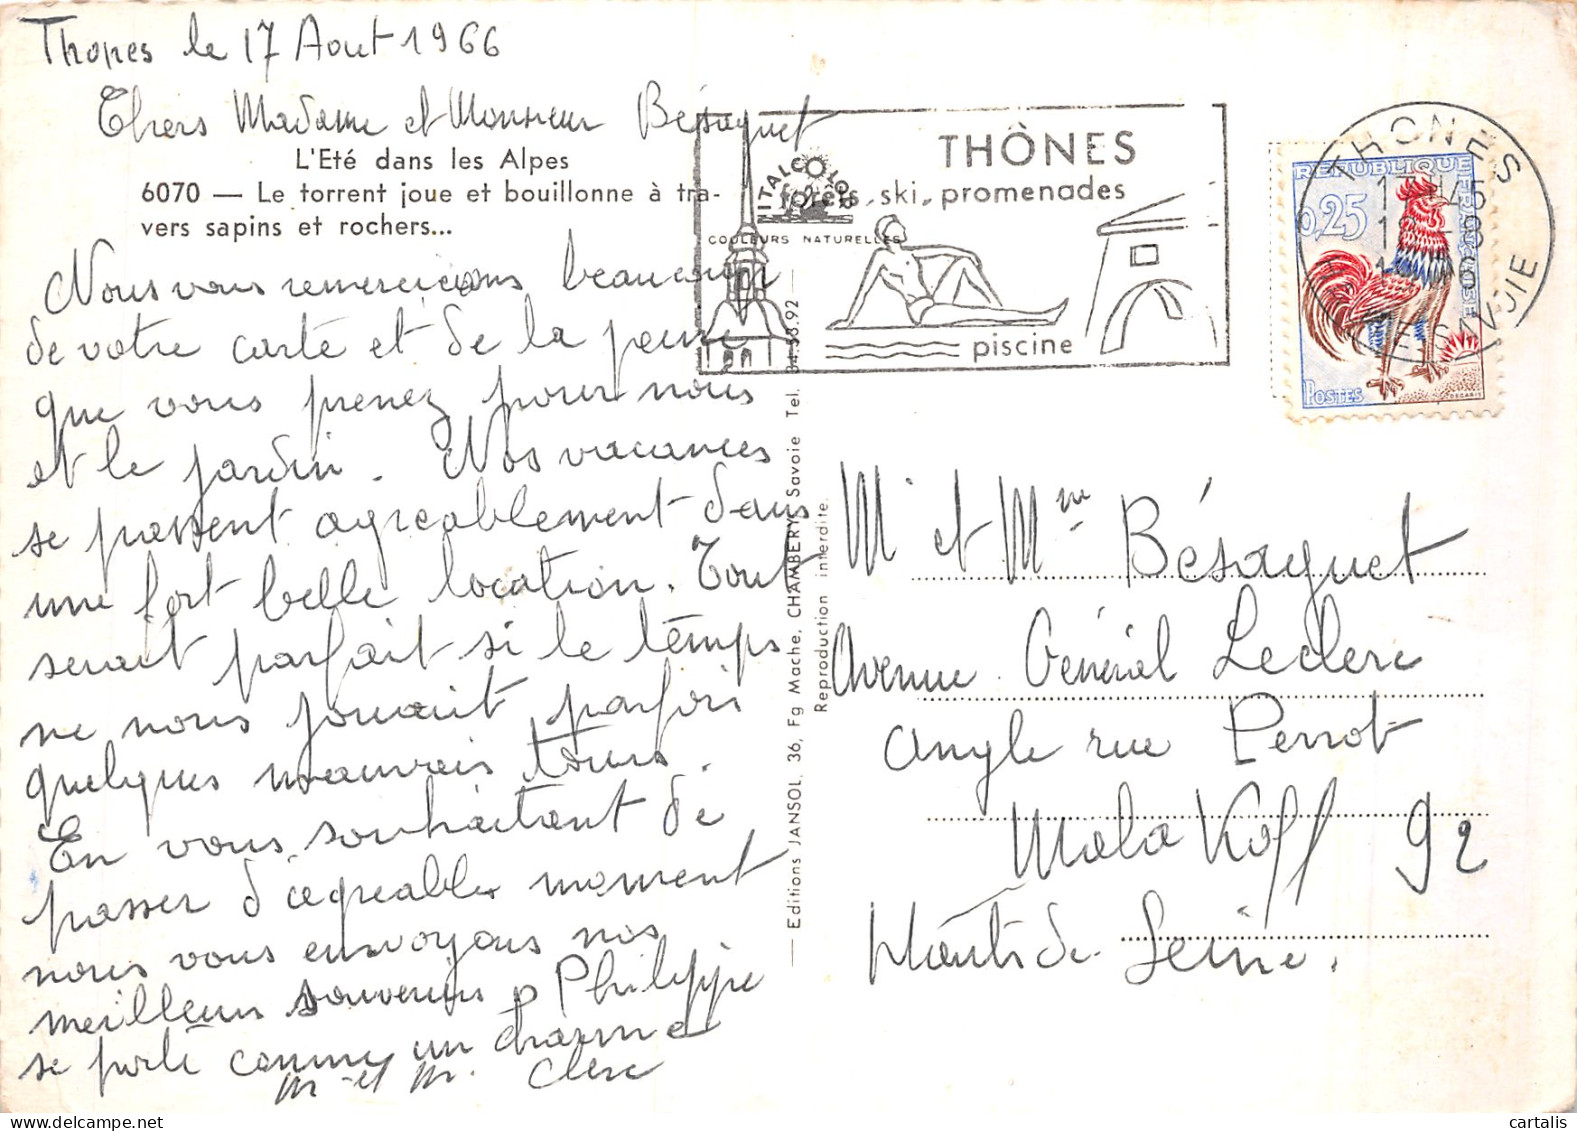 Thones le 17 Aout 1966
Chers Madame et Monsieur Bésaguet
L'Eté dans les Alpes
6070 — Le torrent joue et bouillonne à tra-
vers sapins et rochers...
Nous vous remercions beaucoup
de votre carte et de la peine
que vous prenez pour nous
et le jardin. Nos vacances
se passent agreablement dans
une fort belle location. Tout
serait parfait si le temps
ne nous jouait parfois
quelques mauvais tours.
En vous souhaitant de
passer d'agreables moment
nous vous envoyons nos
meilleurs souvenirs Philippe
se porte comme un charme
M. et M. Clerc
ITALCOLOR
COULEURS NATURELLES
— Editions JANSOL, 36, Fg Mache, CHAMBERY, Savoie Tel. 34.53.92 —
Reproduction interdite.
THÔNES
forêts, ski, promenades
piscine
THONES
17H45
18-8
1966
HTE SAVOIE
REPUBLIQUE FRANÇAISE
0,25
POSTES
DECARIS
Mr et Mme Bésaguet
Avenue Général Leclerc
angle rue Perrot
Malakoff 92
Hauts de Seine.